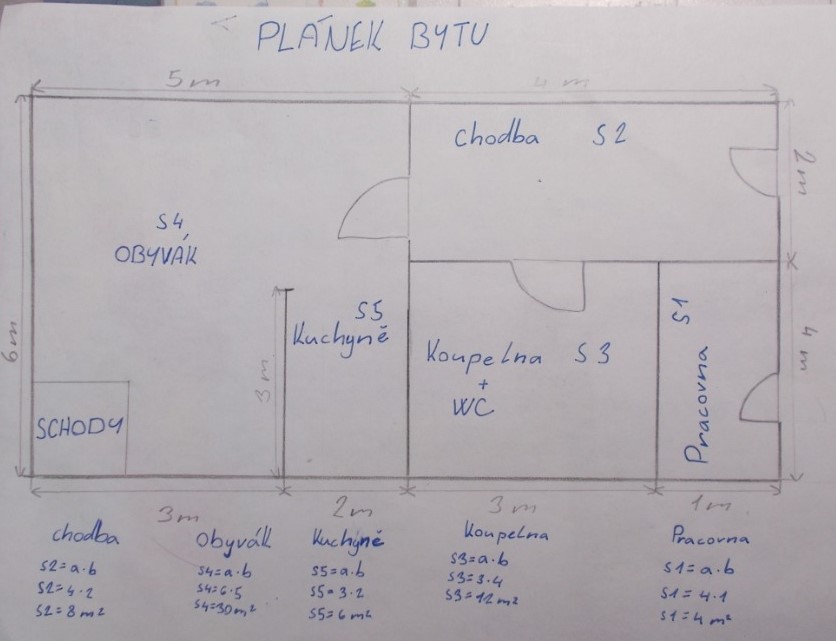 PLÁNEK BYTU
5m
4m
chodba S2
2m
S4
OBYVÁK
S5
Kuchyně
S1
Koupelna S3
+
WC
Pracovna
6m
3m
4m
SCHODY
3m
2m
3m
1m
chodba
S2=a·b
S2=4·2
S2=8m²
Obyvák
S4=a·b
S4=6·5
S4=30m²
Kuchyně
S5=a·b
S5=3·2
S5=6m²
Koupelna
S3=a·b
S3=3·4
S3=12m²
Pracovna
S1=a·b
S1=4·1
S1=4m²